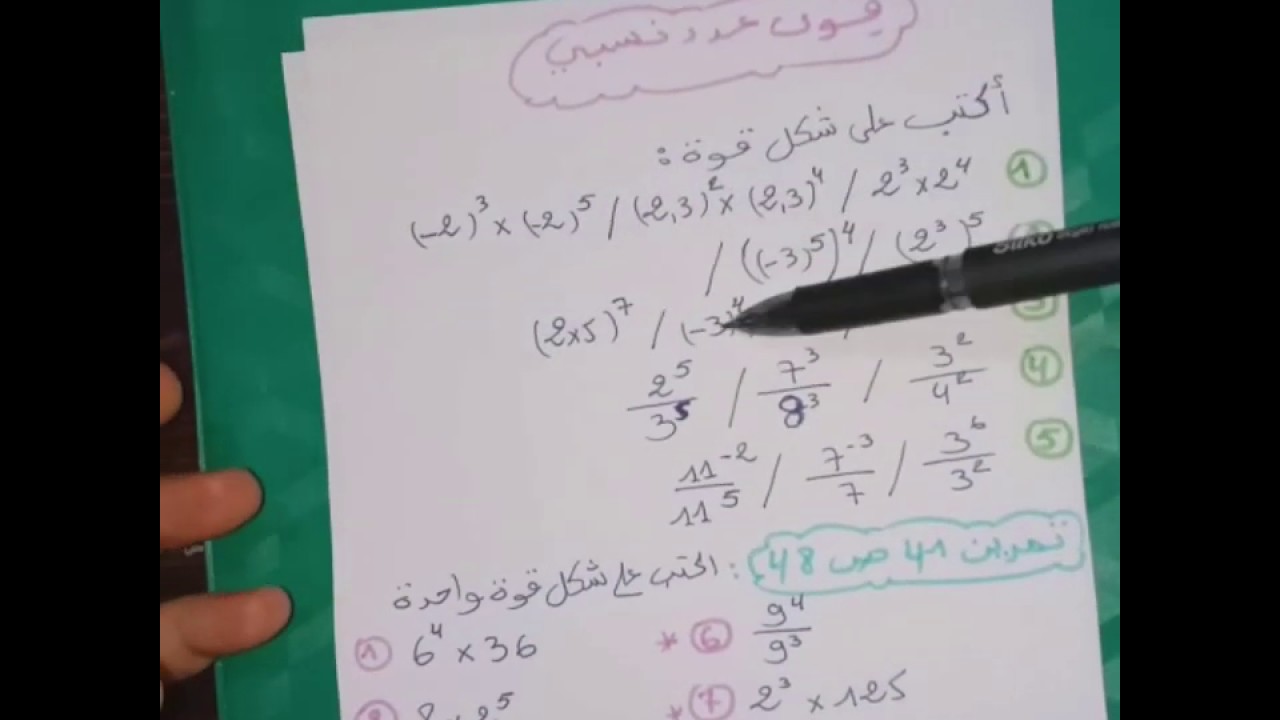 قوى عدد نسبي
أكتب على شكل قوة :
① 2³ × 2⁴ / (2,3)² × (2,3)⁴ / (-2)³ × (-2)⁵
(2³)⁵ / ((-3)⁵)⁴ /
(-3)⁴ / (2×5)⁷
④ 3²/4² / 7³/8³ / 2⁵/3⁵
⑤ 3⁶/3² / 7⁻³/7 / 11⁻²/11⁵
تمرين 41 ص 48 : اكتب على شكل قوة واحدة
① 6⁴ × 36
* ⑥ 9⁴/9³
* ⑦ 2³ × 125